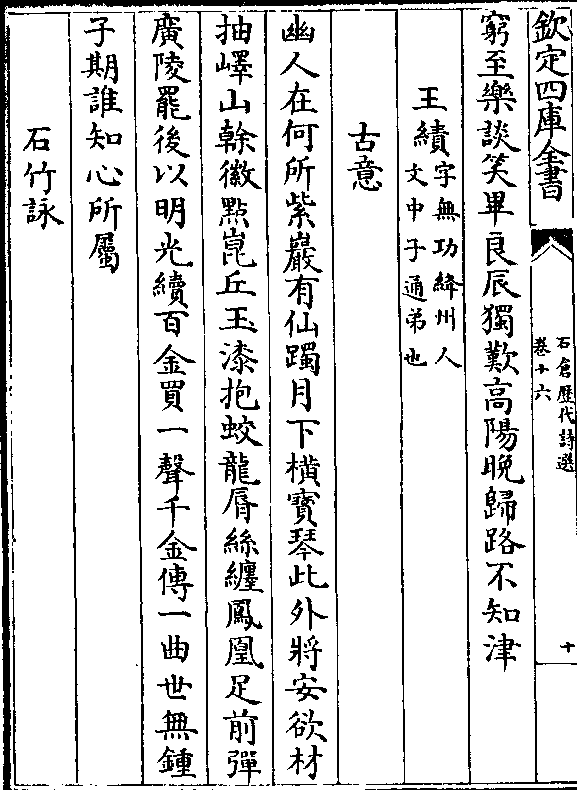 欽定四庫全書
石倉歷代詩選
卷十六
十
窮至樂談笑畢良辰獨歎高陽晚歸路不知津
王績字無功絳州人
文中子通弟也
古意
幽人在何所紫巖有仙躅月下橫寶琴此外將安欲材
抽嶧山榦徽點崑丘玉漆抱蛟龍脣絲纏鳳凰足前彈
廣陵罷後以明光續百金買一聲千金傳一曲世無鍾
子期誰知心所屬
石竹詠